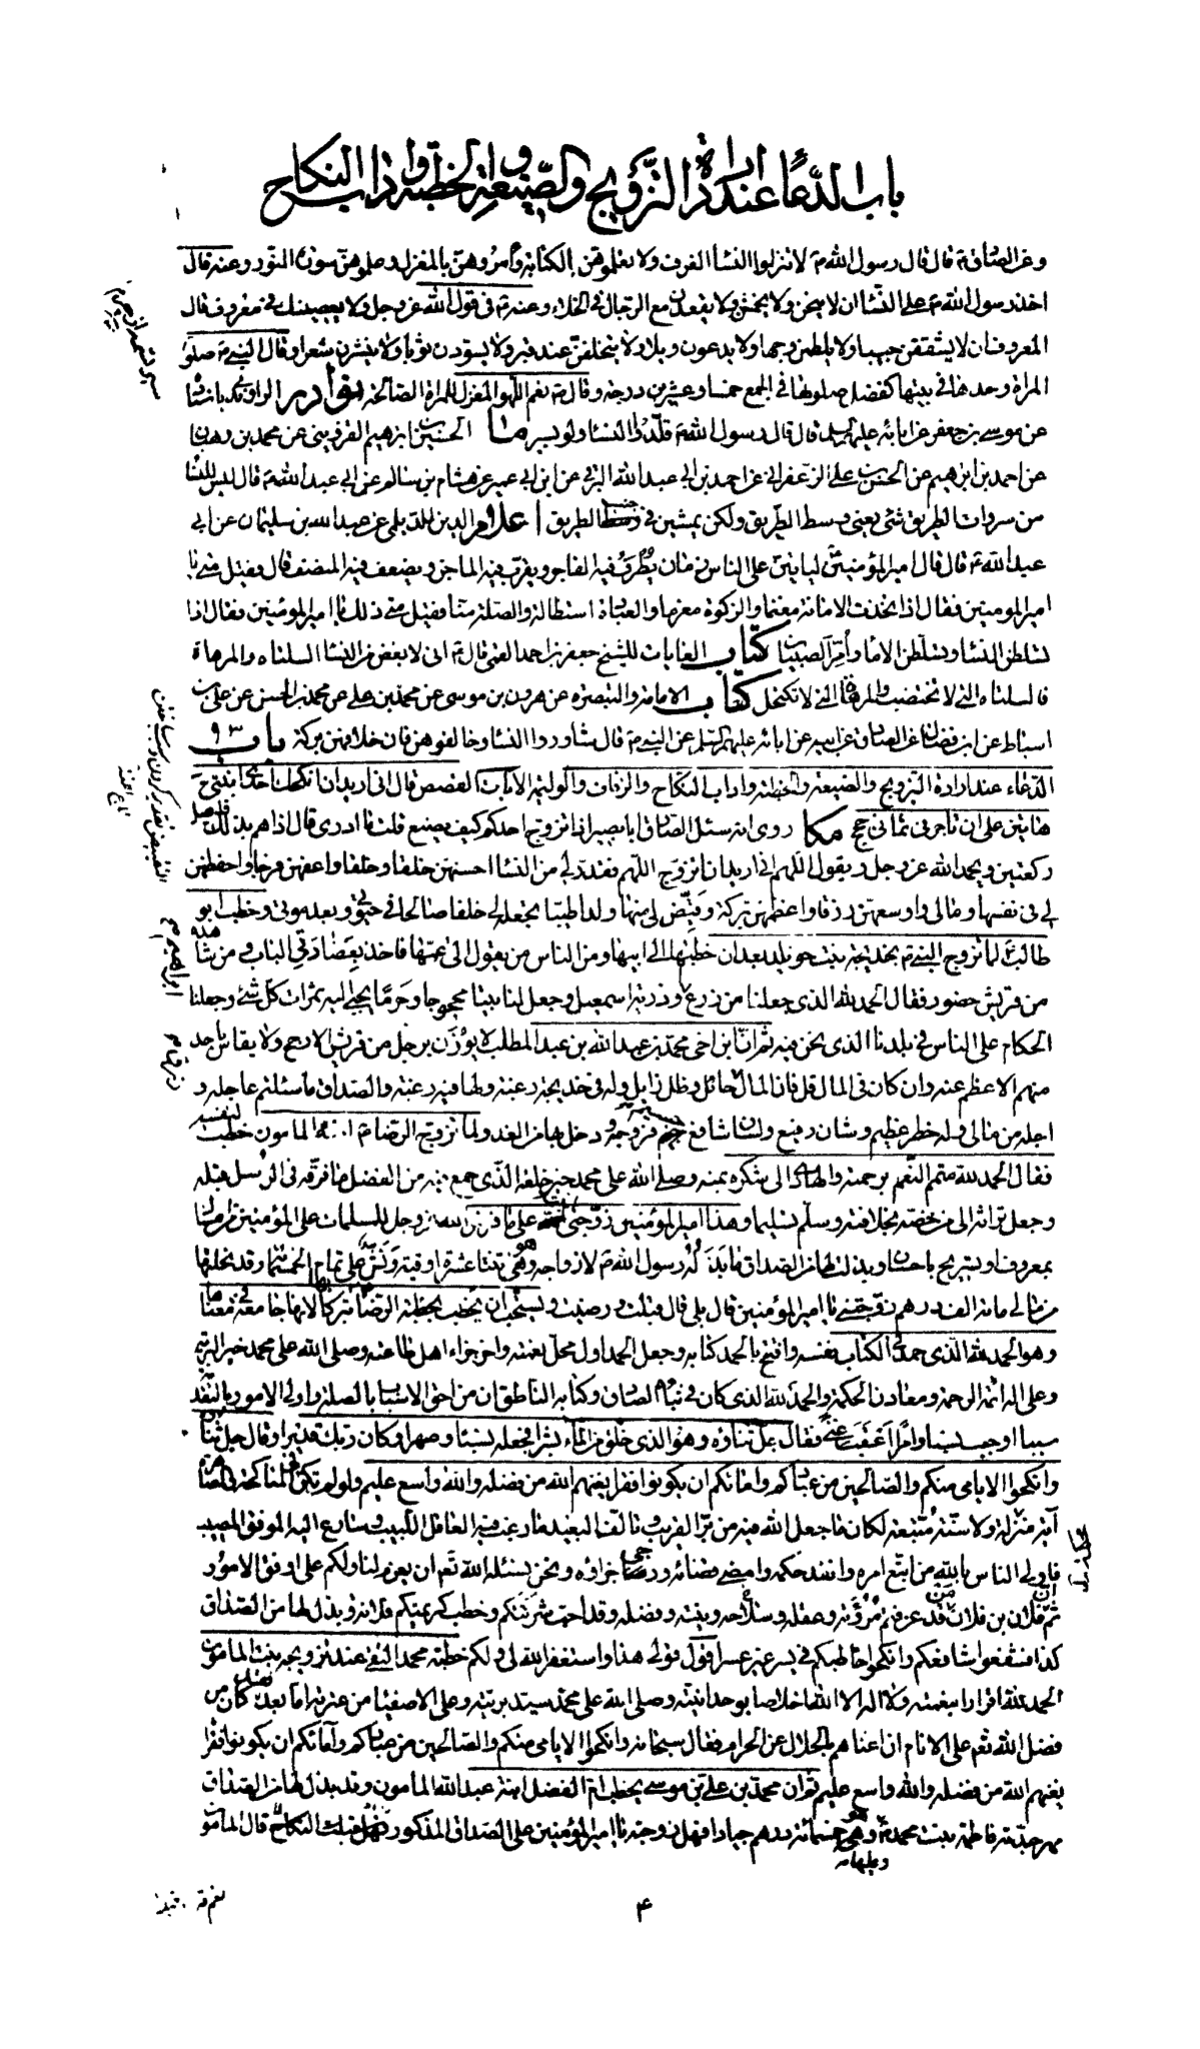 باب الدعاء عند ارادة التزويج والصيغة والخطبة واداب النكاح
وعن الصادق ع قال قال رسول الله ص لا تنزلوا النساء الغرف ولا تعلموهن الكتابة وأمروهن بالمغزل وعلموهن سورة النور وعنه قال
اخذ رسول الله ص على النساء ان لا ينحن ولا يخمشن ولا يقعدن مع الرجال في الخلاء وعنه ع في قول الله عز وجل ولا يعصينك في معروف قال
المعروف ان لا يشققن جيبا ولا يلطمن وجها ولا يدعون ويلا ولا يتخلفن عند قبر ولا يسودن ثوبا ولا ينشرن شعرا وقال النبي ص صلوة
المراة وحدها في بيتها كفضل صلوتها في الجمع خمسا وعشرين درجة وقال ص نعم اللهو المغزل للمراة الصالحة نوادر الراوندي باسناده
عن موسى بن جعفر عن ابائه عليهم السلم قال قال رسول الله ص الحسين بن ابرهيم القزويني عن محمد بن وهبان
عن احمد بن ابرهيم عن الحسن بن علي الزعفراني عن احمد بن ابي عبد الله البرقي عن ابن ابي عمير عن هشام بن سالم عن ابي عبد الله ع قال ليس للنساء
من سروات الطريق شئ يعني وسط الطريق ولكن يمشين في الطريق اعلام الدين للديلمي عن عبد الله بن سليمان عن ابي
عبد الله ع قال قال امير المؤمنين ليأتين على الناس زمان يظرف فيه الفاجر ويقرب فيه الماجن ويضعف فيه المنصف قال فقيل متى يا
امير المؤمنين فقال اذا اتخذت الامانة مغنما والزكوة مغرما والعبادة استطالة والصلة منا فقيل متى ذلك يا امير المؤمنين فقال اذا
تسلطن النساء وتسلطن الاماء وأمر الصبيان كتاب الغايات للشيخ جعفر بن احمد القمي قال ع اني لابغض من النساء السلتاء والمرهاء
فالسلتاء التي لا تختضب والمرهاء التي لا تكتحل كتاب الامامة والتبصرة عن هرون بن موسى عن محمد بن علي عن محمد بن الحسن عن علي بن
اسباط عن ابن فضال عن الصادق عن ابيه عن ابائه عليهم السلم عن النبي ص قال شاوروا النساء وخالفوهن فان خلافهن بركة باب ٩٣
الدعاء عند ارادة التزويج والصيغة والخطبة واداب النكاح والزفاف والوليمة الايات القصص قال اني اريد ان انكحك احدى ابنتي
هاتين على ان تأجرني ثماني حجج مكا روى انه سئل الصادق ابا بصير اذا تزوج احدكم كيف يصنع قلت ما ادري قال اذا هم بذلك فليصل
ركعتين ويحمد الله عز وجل ويقول اللهم اني اريد ان اتزوج اللهم فقدر لي من النساء احسنهن خلقا وخلقا واعفهن فرجا واحفظهن
لي في نفسها ومالي واوسعهن رزقا واعظمهن بركة وقيض لي منها ولدا طيبا تجعله لي خلفا صالحا في حيوتي وبعد موتي وخطب ابو
طالب لما تزوج النبي ص بخديجة بنت خويلد بعد ان خطبها الى ابيها ومن الناس من يقول الى عمها فاخذ بعضادتي الباب ومن شاهده
من قريش حضور فقال الحمد لله الذي جعلنا من زرع وذرية اسمعيل وجعل لنا بيتا محجوجا وحرما يجبى اليه ثمرات كل شئ وجعلنا
الحكام على الناس في بلدنا الذي نحن فيه ثم ان ابن اخي محمد بن عبد الله بن عبد المطلب لا يوزن برجل من قريش الا رجح ولا يقاس باحد
منهم الا عظم عنه وان كان في المال قل فان المال حائل وظل زائل وله في خديجة رغبة ولها فيه رغبة والصداق ما سئلتم عاجله و
اجله من مالي وله خطر عظيم وشان رفيع ولسان شافع جسيم فزوجه ودخل بها من الغد ولما تزوج الرضا ع ابنة المامون خطب لنفسه
فقال الحمد لله متمم النعم برحمته والهادي الى شكره بمنه وصلى الله على محمد خير خلقه الذي جمع فيه من الفضل ما فرقه في الرسل قبله
وجعل تراثه الى من خصه بخلافته وسلم تسليما وهذا امير المؤمنين زوجني ابنته على ما فرض الله عز وجل للمسلمات على المؤمنين من امساك
بمعروف او تسريح باحسان وبذلت لها من الصداق ما بذله رسول الله ص لازواجه وهو اثنتا عشرة اوقية ونش على تمام الخمسمائة وقد نحلتها
من مالي مائة الف درهم زوجتني يا امير المؤمنين قال بلى قال قبلت ورضيت ويستحب ان يخطب بخطبة الرضا تبركا بها لانها جامعة في معناها
وهو الحمد لله الذي حمد في الكتاب نفسه وافتتح بالحمد كتابه وجعل الحمد اول محل نعمته واخر جزاء اهل طاعته وصلى الله على محمد خير البرية
وعلى اله ائمة الرحمة ومعادن الحكمة والحمد لله الذي كان في نبائه الصادق وكتابه الناطق ان من احق الاسباب بالصلة واولى الامور بالتقدمة
سببا اوجب نسبا وامرا اعقب غنى فقال جل ثناؤه وهو الذي خلق من الماء بشرا فجعله نسبا وصهرا وكان ربك قديرا وقال جل ثناؤه
وانكحوا الايامى منكم والصالحين من عبادكم وامائكم ان يكونوا فقراء يغنهم الله من فضله والله واسع عليم ولو لم تكن في المناكحة والمصاهرة
آية منزلة ولا سنة متبعة لكان ما جعل الله فيه من بر القريب وتالف البعيد ما رغب فيه العاقل اللبيب وسارع اليه الموفق المصيب
فاولى الناس بالله من اتبع امره وانفذ حكمه وامضى قضائه ورجى جزاؤه ونحن نسئل الله تع ان يعزم لنا ولكم على اوفق الامور
ثم ان فلان بن فلان من قد عرفتم مروته وعقله وصلاحه ونيته وفضله وقد احب شركتكم وخطب كريمتكم فلانة وبذل لها من الصداق
كذا فشفعوا شافعكم وانكحوا خاطبكم في يسر غير عسر اقول قولي هذا واستغفر الله لي ولكم خطبة محمد التقي عند تزويجه بنت المامون
الحمد لله اقرارا بنعمته ولا اله الا الله اخلاصا بوحدانيته وصلى الله على محمد سيد بريته وعلى الاصفياء من عترته اما بعد فقد كان من
فضل الله تع على الانام ان اغناهم بالحلال عن الحرام فقال سبحانه وانكحوا الايامى منكم والصالحين من عبادكم وامائكم ان يكونوا فقراء
يغنهم الله من فضله والله واسع عليم ثم ان محمد بن علي بن موسى يخطب ام الفضل ابنة عبد الله المامون وقد بذل لها من الصداق
مهر جدته فاطمة بنت محمد ع وهو خمسمائة درهم جيادا فهل زوجته يا امير المؤمنين على الصداق المذكور فهل قبلت النكاح قال المامون
۴